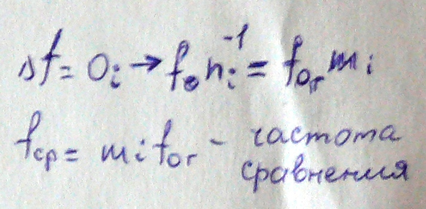 Δf = 0; → f₀ nᵢ⁻¹ = fₒᵣ mᵢ
f_cp = mᵢ fₒᵣ – частота
сравнения